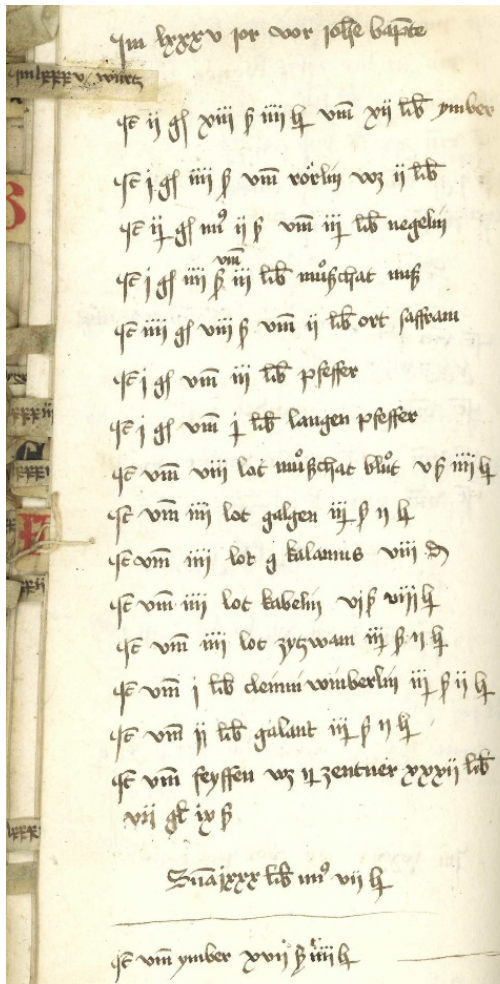 Im lxxxv jor vor johē bapte
im lxxxv wurtz
Jt ii gl xiii ß iiii h vm̄ xii lib ymber
Jt j gl iiii ß vm̄ rörlin wz ii lib
Jt ij gl mͦ ii ß vm̄ iij lib negelin
vm̄
Jt j gl iiii ß iii lib muͦschat nuß
Jt iiii gl viii ß vm̄ ii lib ort saffram
Jt j gl vm̄ iii lib pfeffer
Jt j gl vm̄ j lib langen pfeffer
Jt vm̄ viii lot muͦschat bluͦt v ß iiii h
Jt vm̄ iiii lot galgen iij ß ii h
Jt vm̄ iiii lot kalamus viii
Jt vm̄ iiii lot kabelin vj ß viii h
Jt vm̄ iiii lot zytzwam iij ß ii h
Jt vm̄ j lib cleinin winberlin iij ß ii h
Jt vm̄ ij lib galant iij ß ii h
Jt vm̄ seyffen wz ij zentner xxxii lib
vii gl ix ß
Sūa xxx lib mͦ vii h
Jt vm̄ ymber xvii ß iiii h